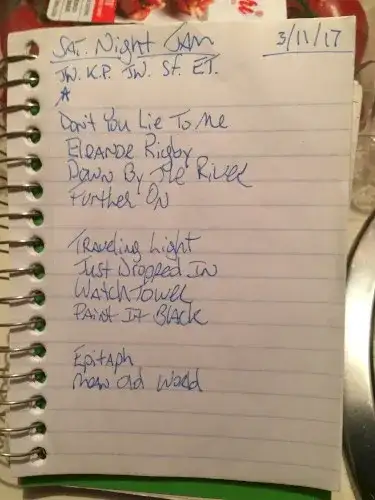 SAT. Night JAM
3/11/17
JW. K.P. JW. Sf. ET.
Don't You Lie To Me
Eleanor Rigby
Down By The River
Further ON
Traveling Light
Just Dropped IN
Watch Tower
Paint It Black
Epitaph
old World